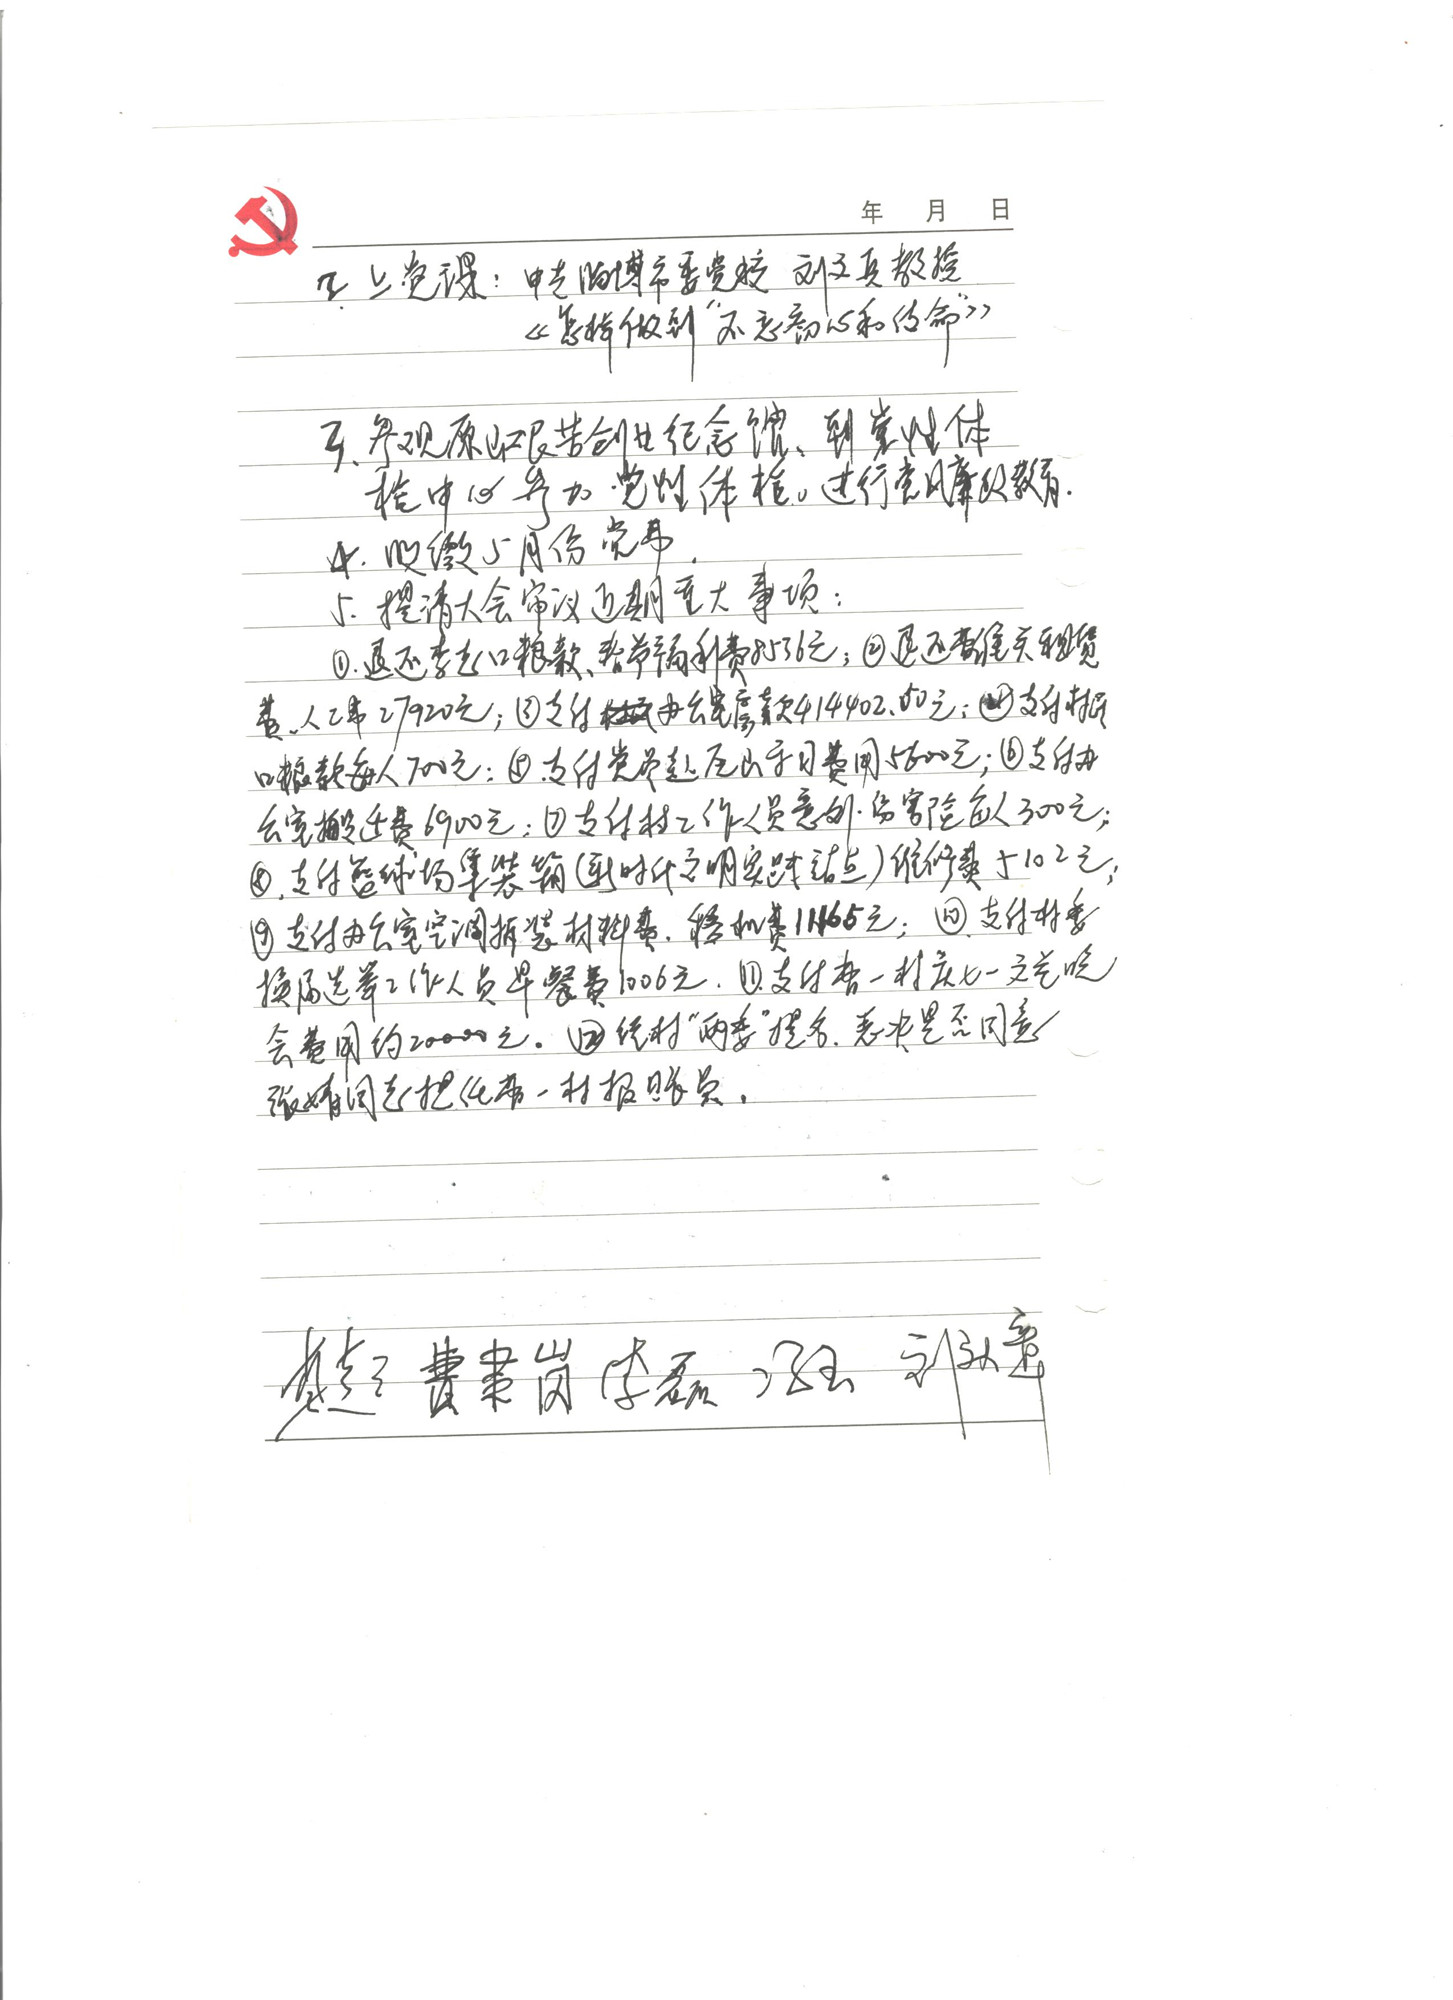 年 月 日
2. 上党课：中共淄博市委党校 刘文真教授
《怎样做到“不忘初心和使命”》
3、参观原山艰苦创业纪念馆、到党性体
检中心参加党性体检。进行党风廉政教育.
4. 收缴5月份党费.
5. 提请大会审议近期重大事项：
①.退还李 口粮款、春节福利费8536元；②退还 租赁
费、人工费27920元；③支付 办公室房款414402.00元；④支付村民
口粮款每人700元；⑤.支付党员赴原山主日费用5600元；⑥支付办
公室搬迁费6900元；⑦支付村工作人员意外伤害险每人300元；
⑧.支付篮球场集装箱(新时代文明实践站点)维修费5102元；
⑨支付办公室空调拆装材料费、移机费11165元；⑩.支付村委
换届选举工作人员早餐费1006元.⑪.支付 一村庆七一文艺晚
会费用约20000元。⑫经村“两委”提名.表决是否同意
张婧同志担任 一村报账员.
费聿岗 李磊